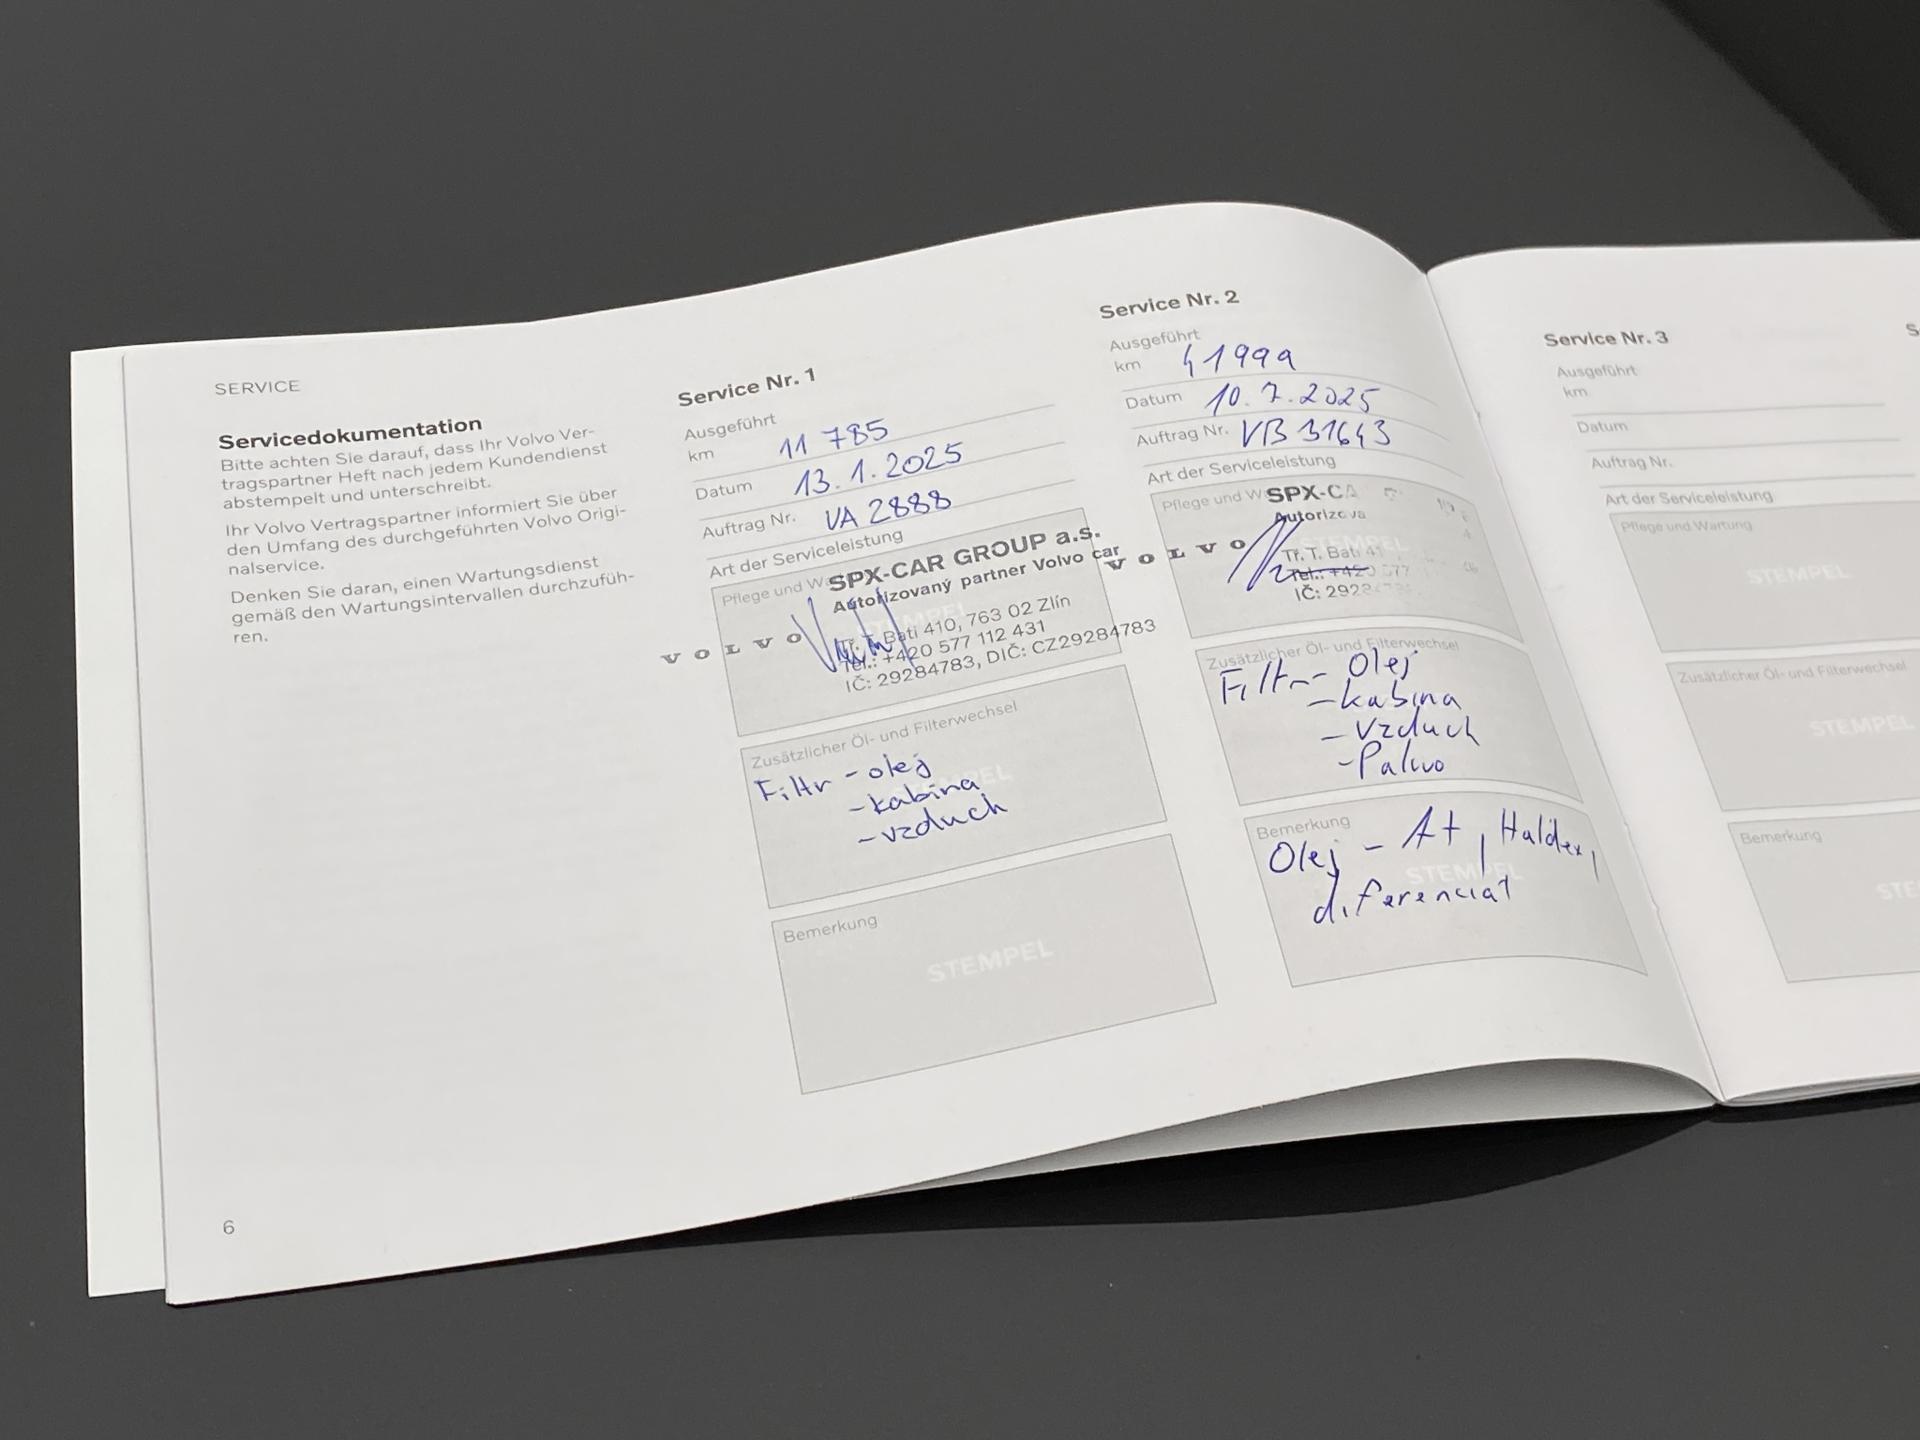 SERVICE
Servicedokumentation
Bitte achten Sie darauf, dass Ihr Volvo Ver-
tragspartner Heft nach jedem Kundendienst
abstempelt und unterschreibt.
Ihr Volvo Vertragspartner informiert Sie über
den Umfang des durchgeführten Volvo Origi-
nalservice.
Denken Sie daran, einen Wartungsdienst
gemäß den Wartungsintervallen durchzufüh-
ren.
6
Service Nr. 1
Ausgeführt
km 11 785
Datum 13.1.2025
Auftrag Nr. VA 2888
Art der Serviceleistung
Pflege und
SPX-CAR GROUP a.s.
Autorizovaný partner Volvo car
VOLVO
Tř. T. Bati 410, 763 02 Zlín
Tel.: +420 577 112 431
IČ: 29284783, DIČ: CZ29284783
Zusätzlicher Öl- und Filterwechsel
Filtr - olej
- kabina
- vzduch
Bemerkung
STEMPEL
Service Nr. 2
Ausgeführt
km 41999
Datum 10.7.2025
Auftrag Nr. VB 31643
Art der Serviceleistung
Pflege und
SPX-CA
VOLVO
Tř. T. Bati 41
IČ: 292
Zusätzlicher Öl- und Filterwechsel
Filtr - Olej
- kabina
- vzduch
- Palivo
Bemerkung
STEMPEL
Olej - At, Haldex,
diferenciat
Service Nr. 3
Ausgeführt
km
Datum
Auftrag Nr.
Art der Serviceleistung
Pflege und Wartung
STEMPEL
Zusätzlicher Öl- und Filterwechsel
STEMPEL
Bemerkung
STE